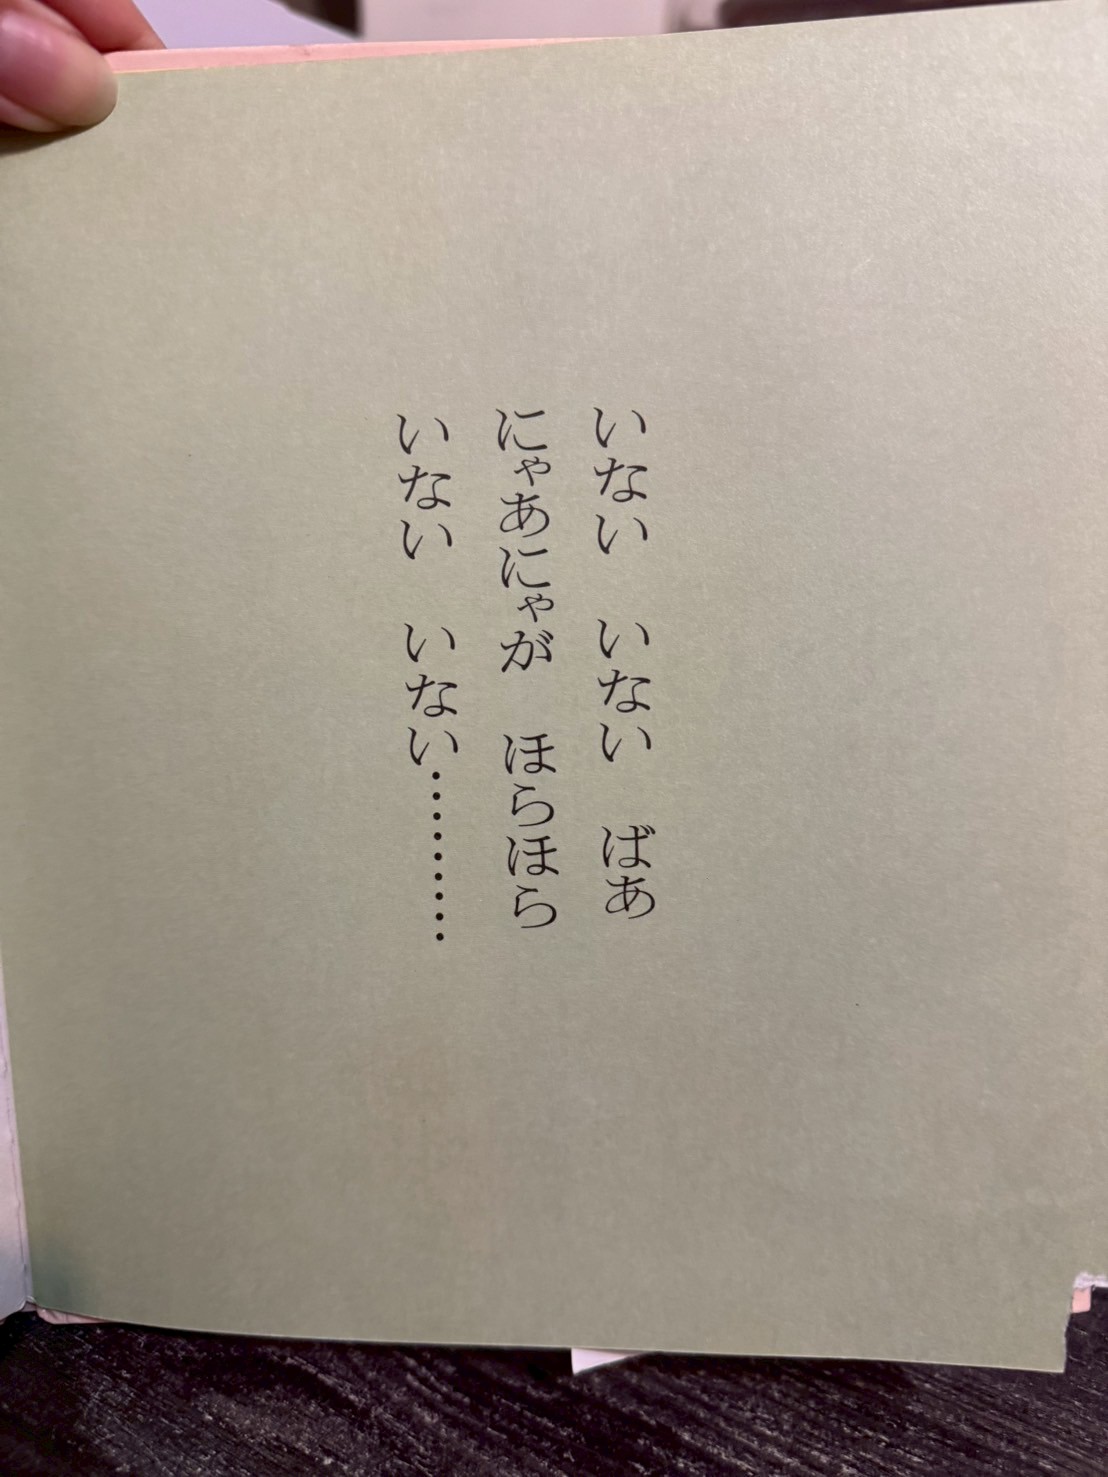 いない　いない　ばあ
にゃあにゃが　ほらほら
いない　いない………